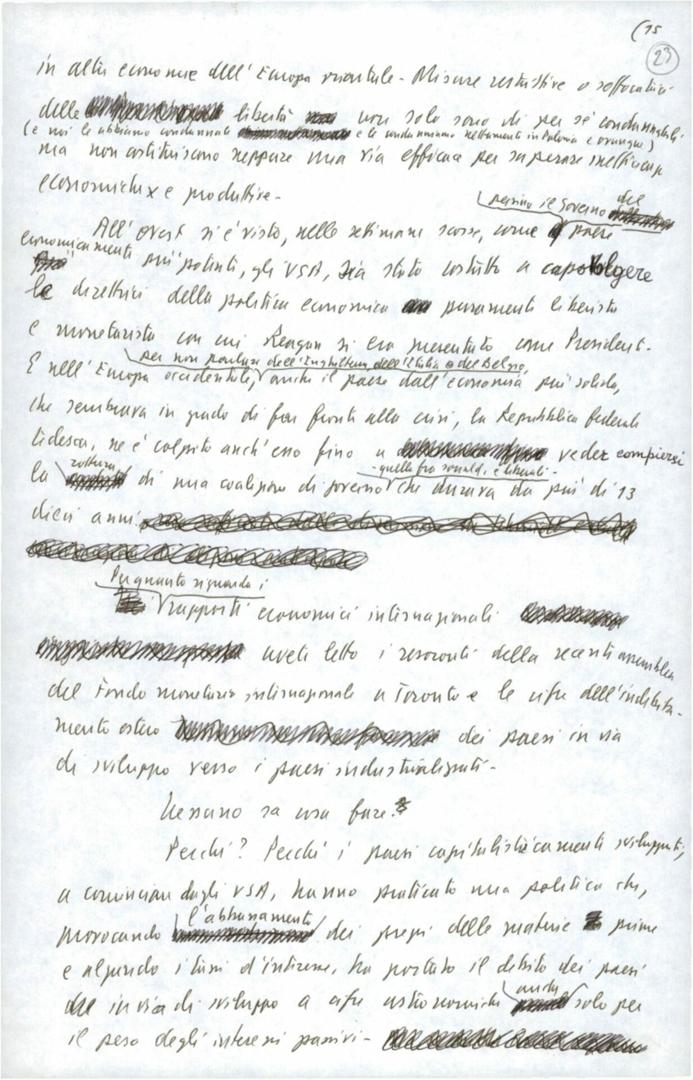 (15
23
in altre economie dell'Europa orientale - Misure restrittive o soffocatrici
delle libertà non solo sono di per sé condannabili
(e noi le abbiamo condannate e le condanniamo nettamente in Polonia e ovunque)
ma non costituiscono neppure una via efficace per superare
economiche e produttive -
persino il governo del
All'ovest si è visto, nelle settimane scorse, come paese
economicamente più potente, gli USA, sia stato costretto a capovolgere
le direttrici della politica economica puramente liberista
e monetarista con cui Reagan si era presentato come Presidente.
per non parlare dell'Inghilterra, dell'Italia o del Belgio,
E nell'Europa occidentale, anche il paese dall'economia più solida,
che sembrava in grado di far fronte alla crisi, la Repubblica federale
tedesca, ne è colpito anch'esso fino a veder compiersi
rottura - quella fra socialdem. e liberali -
la di una coalizione di governo che durava da più di 13
dieci anni.
Per quanto riguarda i
rapporti economici internazionali
avete letto i resoconti della recente assemblea
del Fondo monetario internazionale a Toronto e le cifre dell'indebita-
mento estero dei paesi in via
di sviluppo verso i paesi industrializzati -
Nessuno sa cosa fare.
Perché? Perché i paesi capitalisticamente sviluppati,
a cominciare dagli USA, hanno praticato una politica che,
l'abbassamento
provocando dei prezzi delle materie prime
e alzando i tassi d'interesse, ha portato il debito dei paesi
anche
in via di sviluppo a cifre astronomiche solo per
il peso degli interessi passivi -